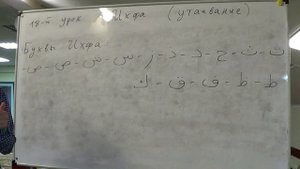 18-й урок Ихфа (утаивание)
Буквы Ихфа
ت - ث - ج - د - ذ - ز - س - ش - ص - ض -
ط - ظ - ف - ق - ك